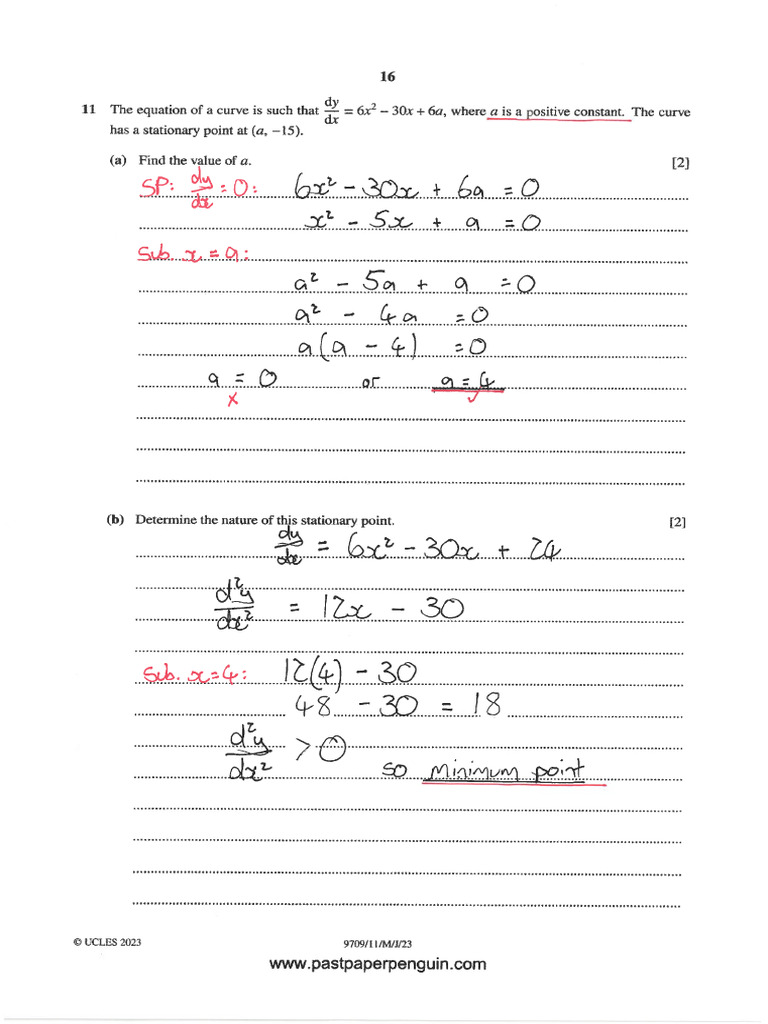 16
11 The equation of a curve is such that dy/dx = 6x² − 30x + 6a, where a is a positive constant. The curve
has a stationary point at (a, −15).
(a) Find the value of a. [2]
SP: dy/dx = 0: 6x² − 30x + 6a = 0
x² − 5x + a = 0
Sub. x = a:
a² − 5a + a = 0
a² − 4a = 0
a(a − 4) = 0
a = 0 or a = 4
✗ ✓
(b) Determine the nature of this stationary point. [2]
dy/dx = 6x² − 30x + 24
d²y/dx² = 12x − 30
Sub. x=4: 12(4) − 30
48 − 30 = 18
d²y/dx² > 0
so minimum point
© UCLES 2023 9709/11/M/J/23
www.pastpaperpenguin.com